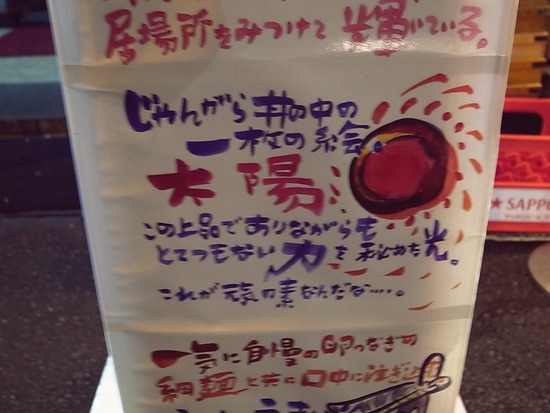 居場所をみつけて輝いている。
じゃんがら丼の中の
一枚の絵。
太陽
この上品でありながらも
とてつもない力を秘めた光。
これが元気の素なんだな…。
一気に自慢の卵つなぎの
細麺と共に口中に注ぎ込
★ SAPPO